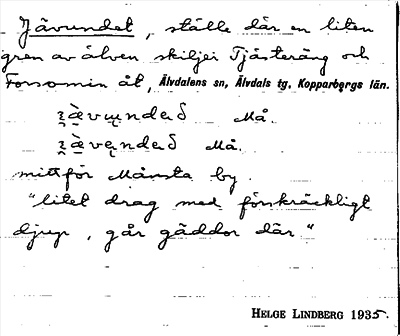 Jävundet, ställe där en liten
gren av älven skiljer Tjästeräng och
Forsomin åt, Älvdalens sn, Älvdals tg, Kopparbergs län.
Må.
Må.
mittför Månsta by.
"litet drag med förskräckligt
djup, går gäddor där."
HELGE LINDBERG 1935.